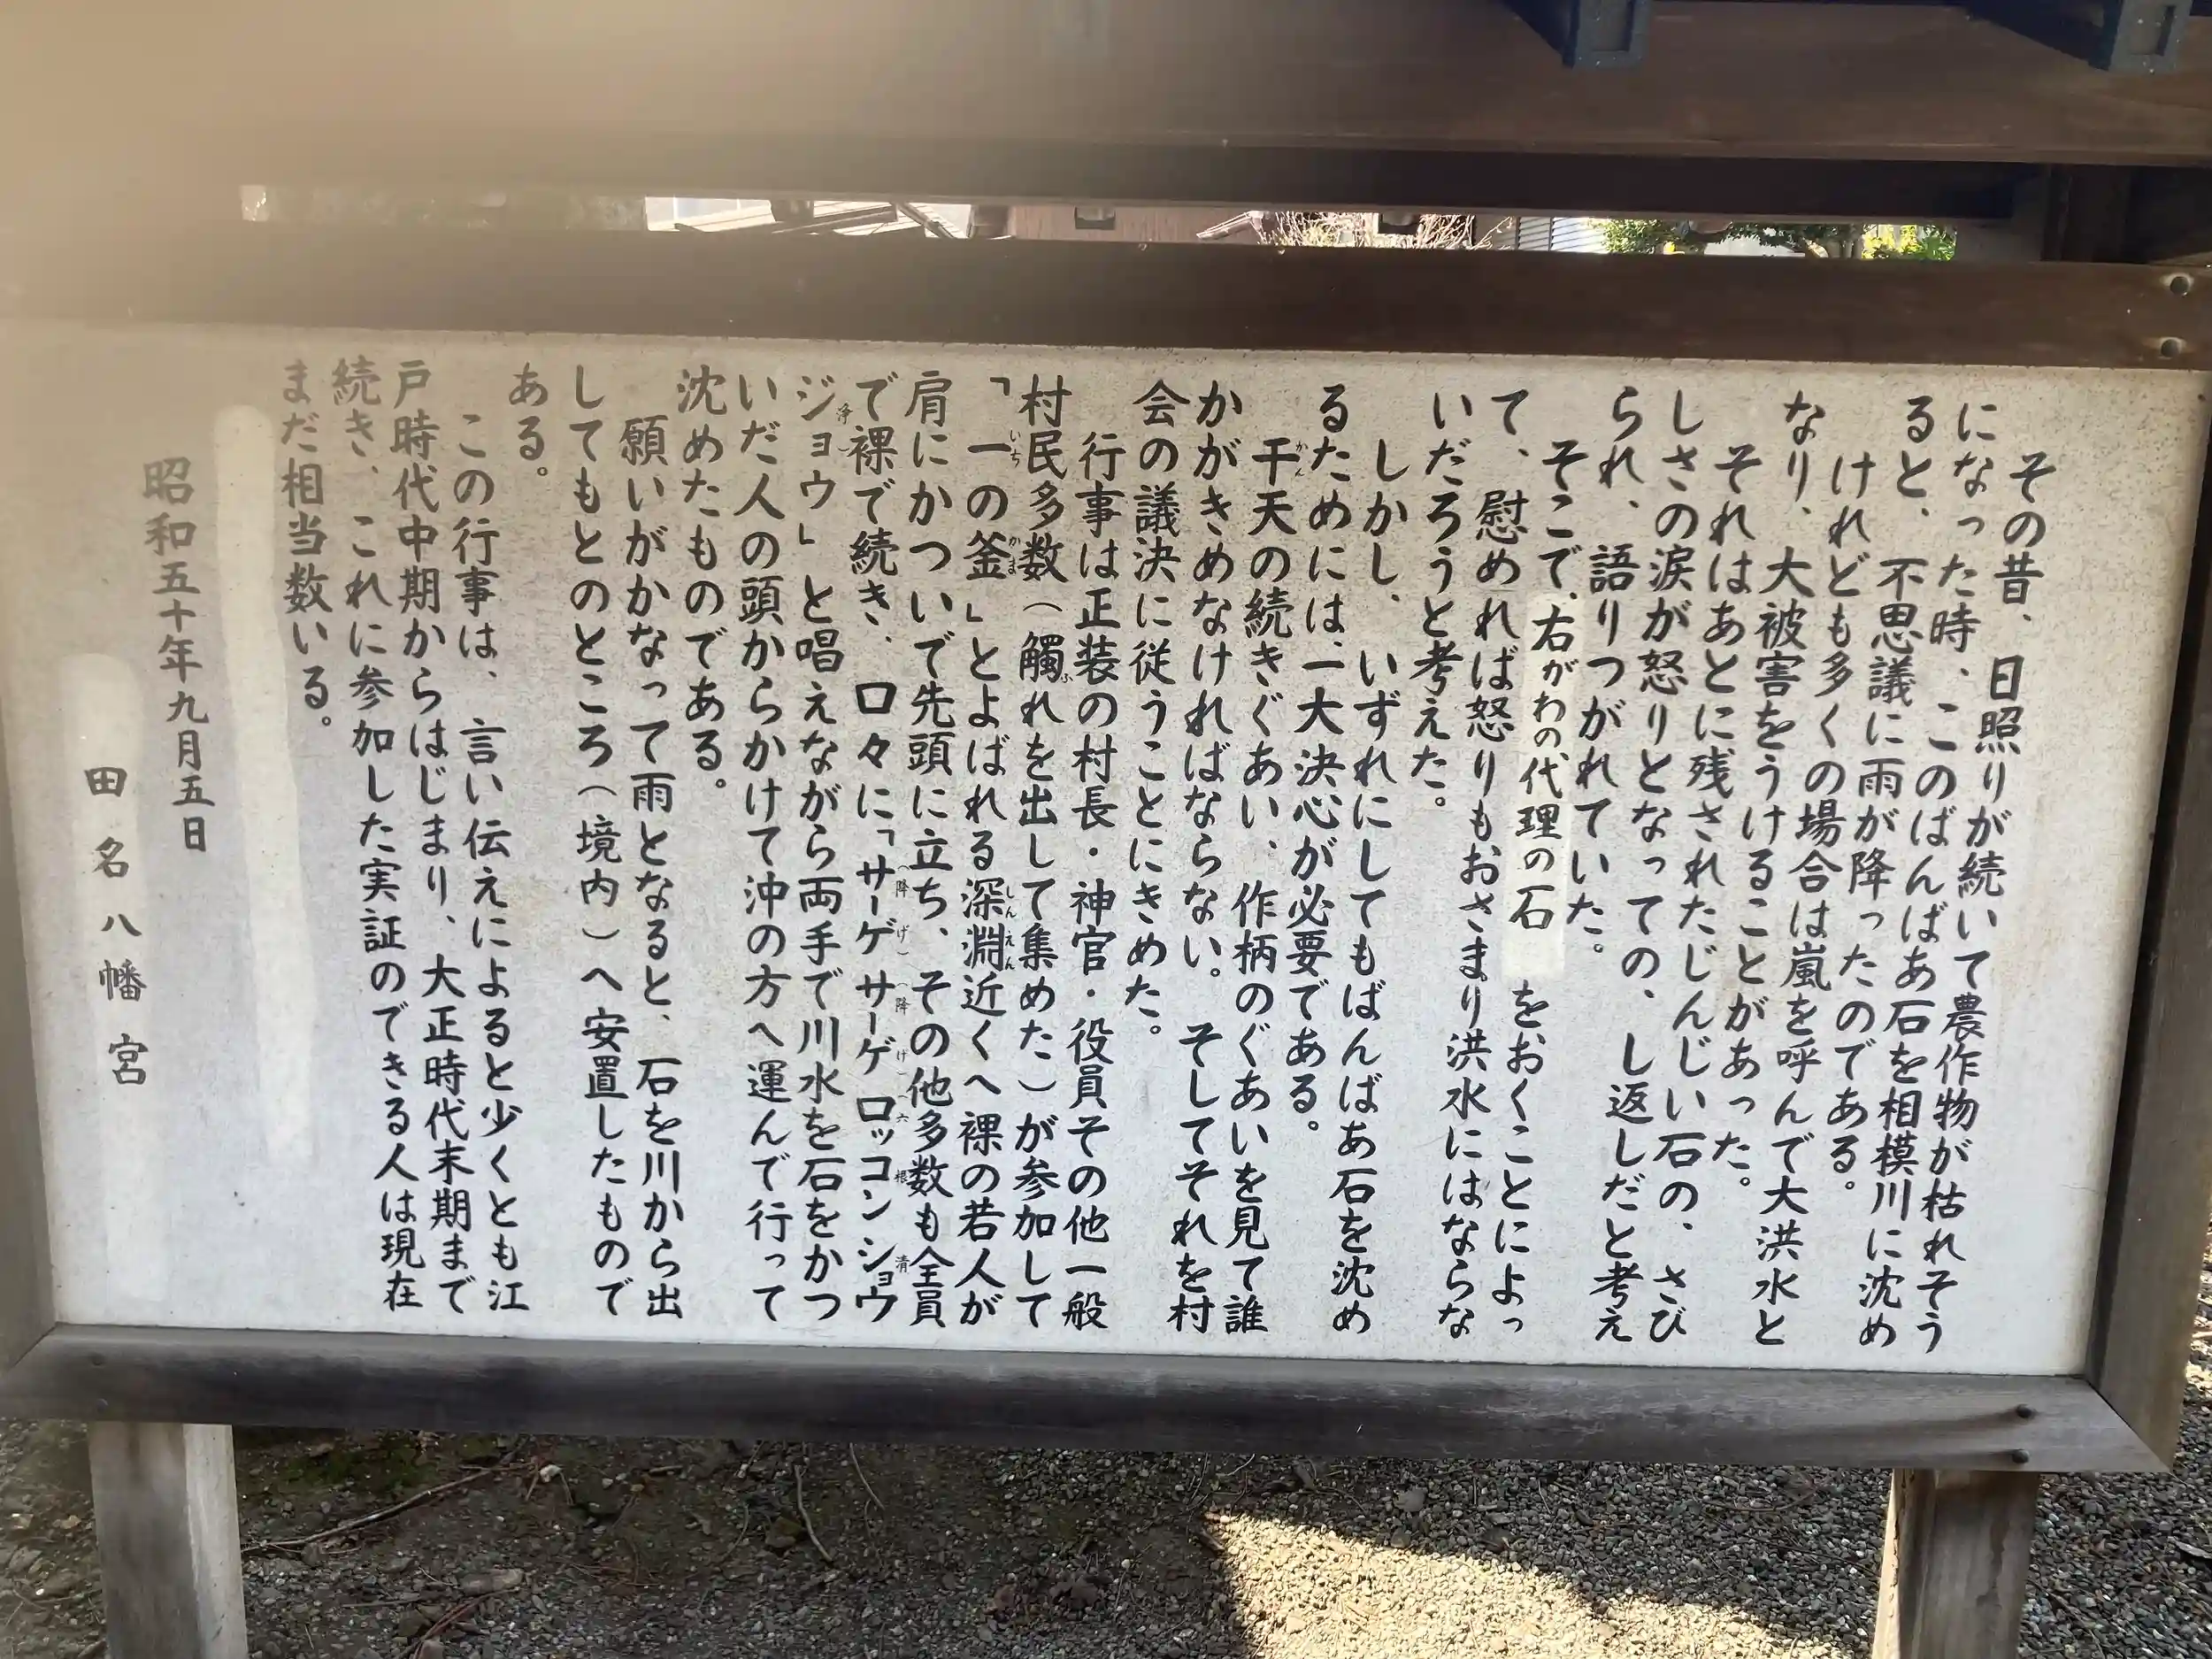 その昔、日照りが続いて農作物が枯れそう
になった時、このばんばあ石を相模川に沈め
ると、不思議に雨が降ったのである。
けれども多くの場合は嵐を呼んで大洪水と
なり、大被害をうけることがあった。
それはあとに残されたじんじい石の、さび
しさの涙が怒りとなっての、し返しだと考え
られ、語りつがれていた。
そこで、右がわの代理の石をおくことによっ
て、慰めれば怒りもおさまり洪水にはならな
いだろうと考えた。
しかし、いずれにしてもばんばあ石を沈め
るためには、一大決心が必要である。
干天の続きぐあい、作柄のぐあいを見て誰
かがきめなければならない。そしてそれを村
会の議決に従うことにきめた。
行事は正装の村長・神官・役員その他一般
村民多数(觸れを出して集めた)が参加して
「一の釜」とよばれる深淵近くへ裸の若人が
肩にかついで先頭に立ち、その他多数も全員
で裸で続き、口々に「サーゲサーゲロッコンショウ
ジョウ」と唱えながら両手で川水を石をかつ
いだ人の頭からかけて沖の方へ運んで行って
沈めたものである。
願いがかなって雨となると、石を川から出
してもとのところ(境内)へ安置したもので
ある。
この行事は、言い伝えによると少くとも江
戸時代中期からはじまり、大正時代末期まで
続き、これに参加した実証のできる人は現在
まだ相当数いる。
昭和五十年九月五日
田名八幡宮